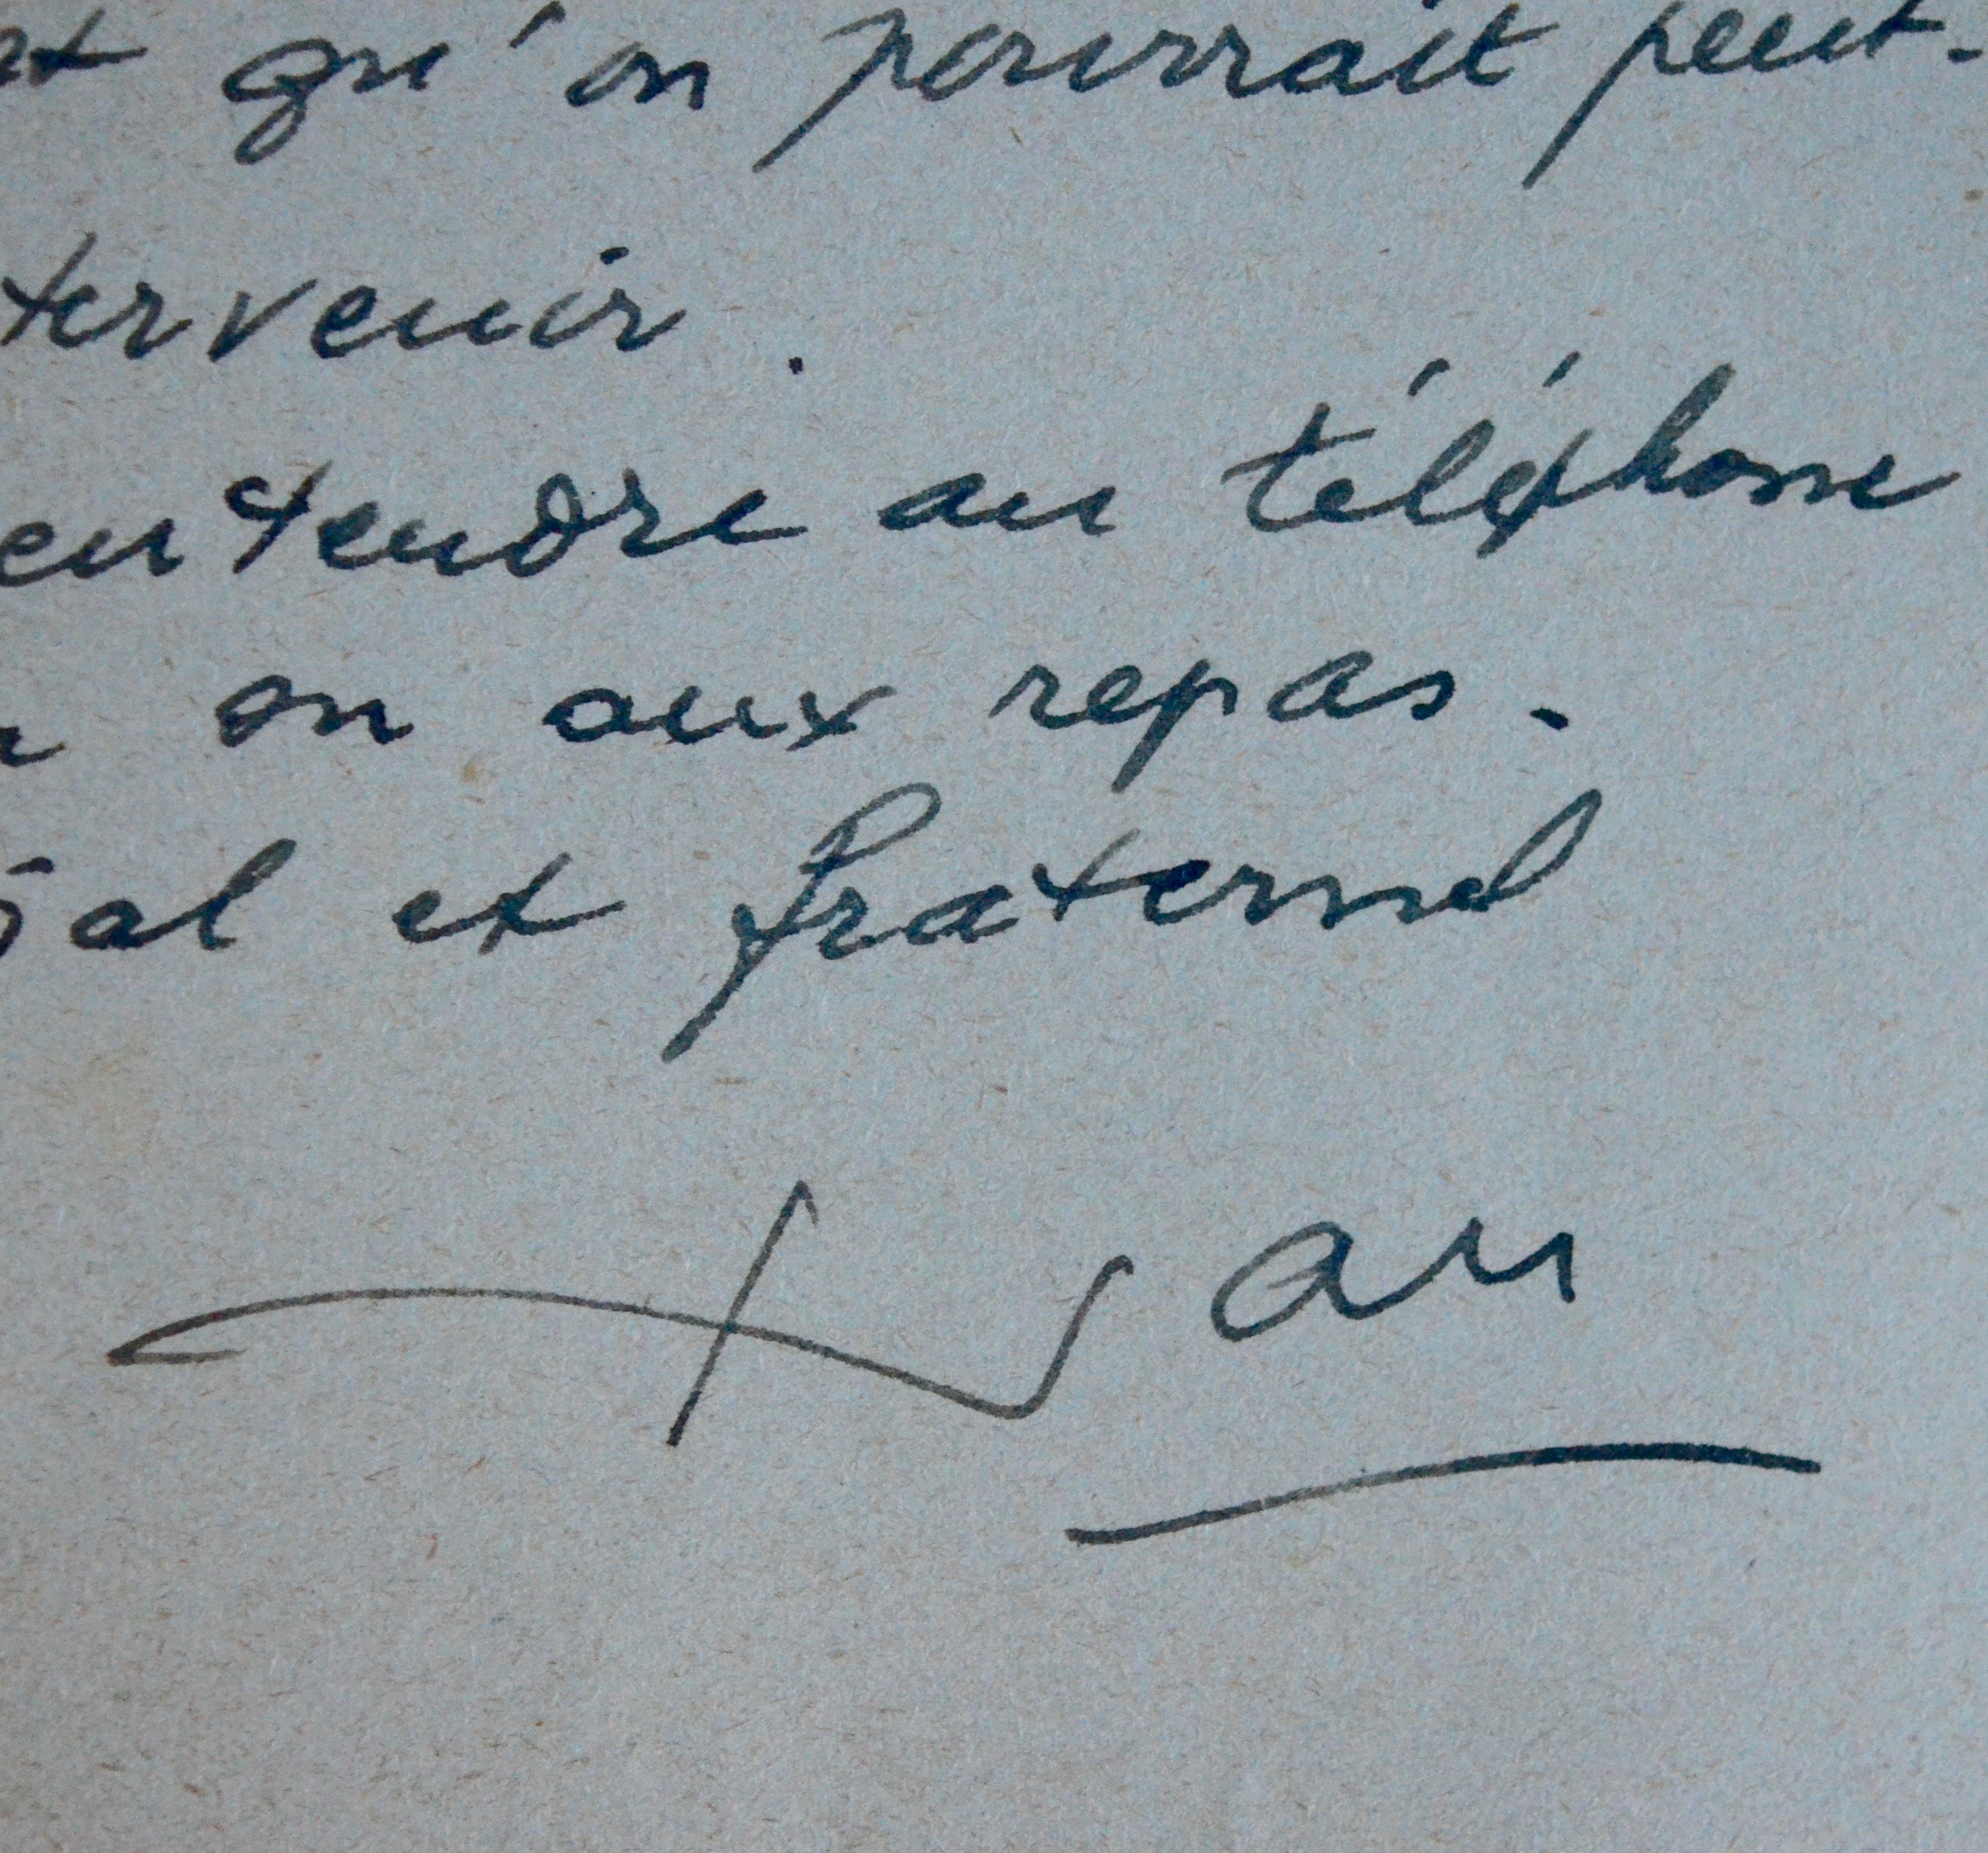 qu'on pourrait peut-
tervenir.
entendre au téléphone
ou aux repas.
al et fraternel